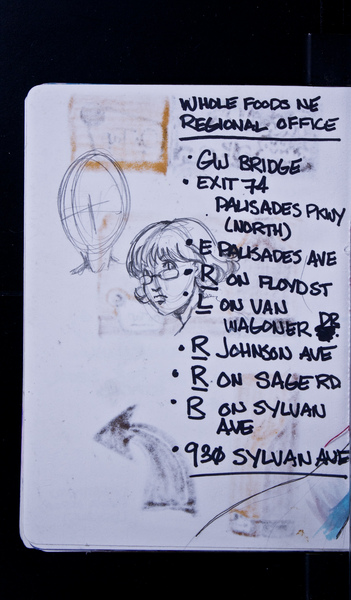 WHOLE FOODS NE
REGIONAL OFFICE
• GW BRIDGE
• EXIT 74
PALISADES PKWY
(NORTH)
• E PALISADES AVE
• R ON FLOYD ST
• L ON VAN
WAGONER DR
• R JOHNSON AVE
• R ON SAGE RD
• R ON SYLVAN
AVE
• 930 SYLVAN AVE